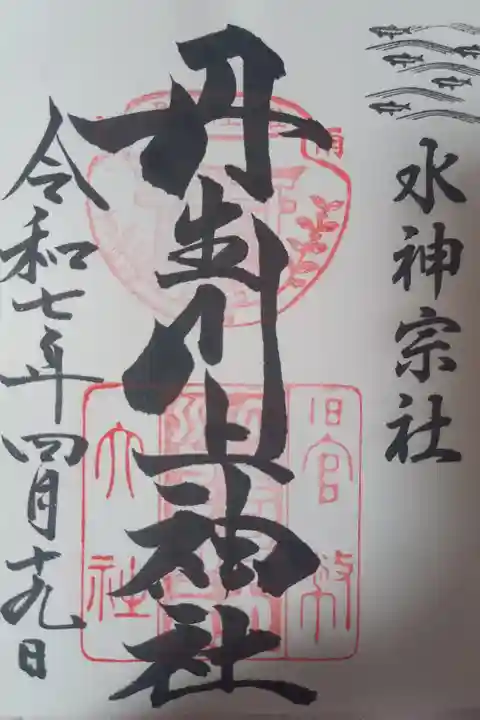 水神宗社
丹生川上神社
旧官幣
大社
令和七年四月十九日